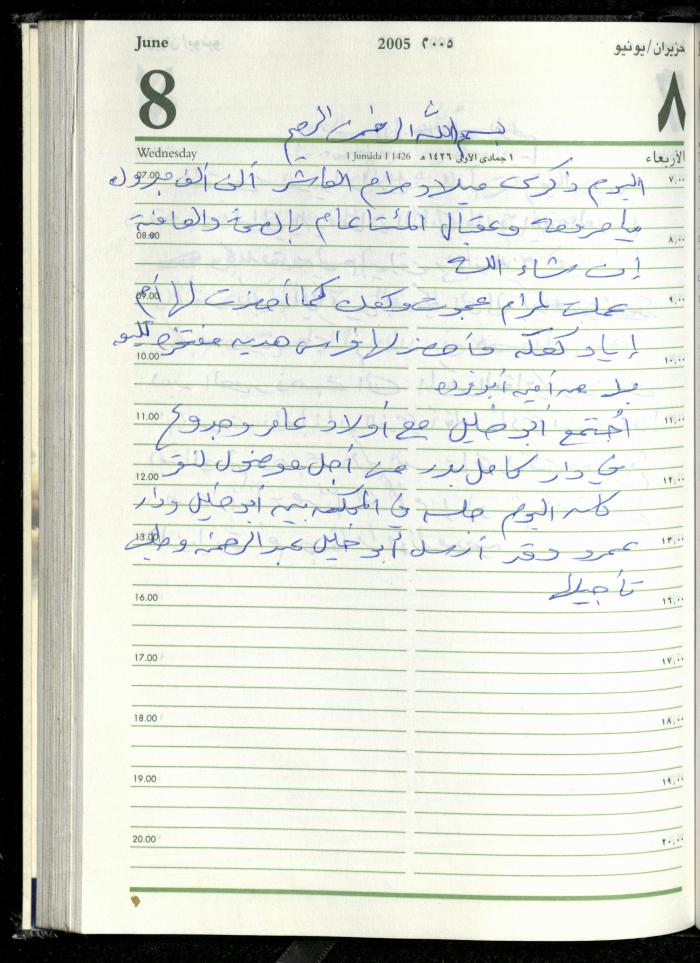 June 2005 ٢٠٠٥ حزيران/يونيو
8 ٨
بسم الله الرحمن الرحيم
Wednesday 1 Jumada I 1426 ١ جمادى الأولى ١٤٢٦ هـ الأربعاء
07.00 اليوم ذاكرى ميلاد مرام العاشر ألف ألف مبروك ٧,٠٠
يا مرمة وعقبال المئتا عام بالصحة والعافية
08.00 ٨,٠٠
إن شاء الله
09.00 عملت لمرام عجوت وكعك كما أحضرت لها أم ٩,٠٠
إياد كعكه وأحضر لها فراس هديه
10.00 ١٠,٠٠
أبو
11.00 أجتمع أبو خليل مع أولاد عامر وجدوع ١١,٠٠
في دار كامل بدر من أجل موضوع
12.00 ١٢,٠٠
كانت اليوم جلسه في المحكمه بين أبو خليل ودار
13.00 عمرو وقد أرسل أبو خليل عبد الرحمن وطلب ١٣,٠٠
تأجيلها
16.00 ١٦,٠٠
17.00 ١٧,٠٠
18.00 ١٨,٠٠
19.00 ١٩,٠٠
20.00 ٢٠,٠٠